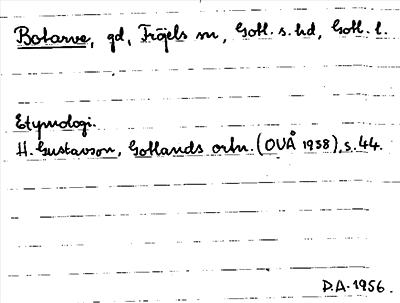 Botarve, gd, Fröjels sn, Gotl. s. hd, Gotl. l.
Etymologi.
H. Gustavson, Gotlands ortn. (OUÅ 1938), s. 44.
D.A. 1956.